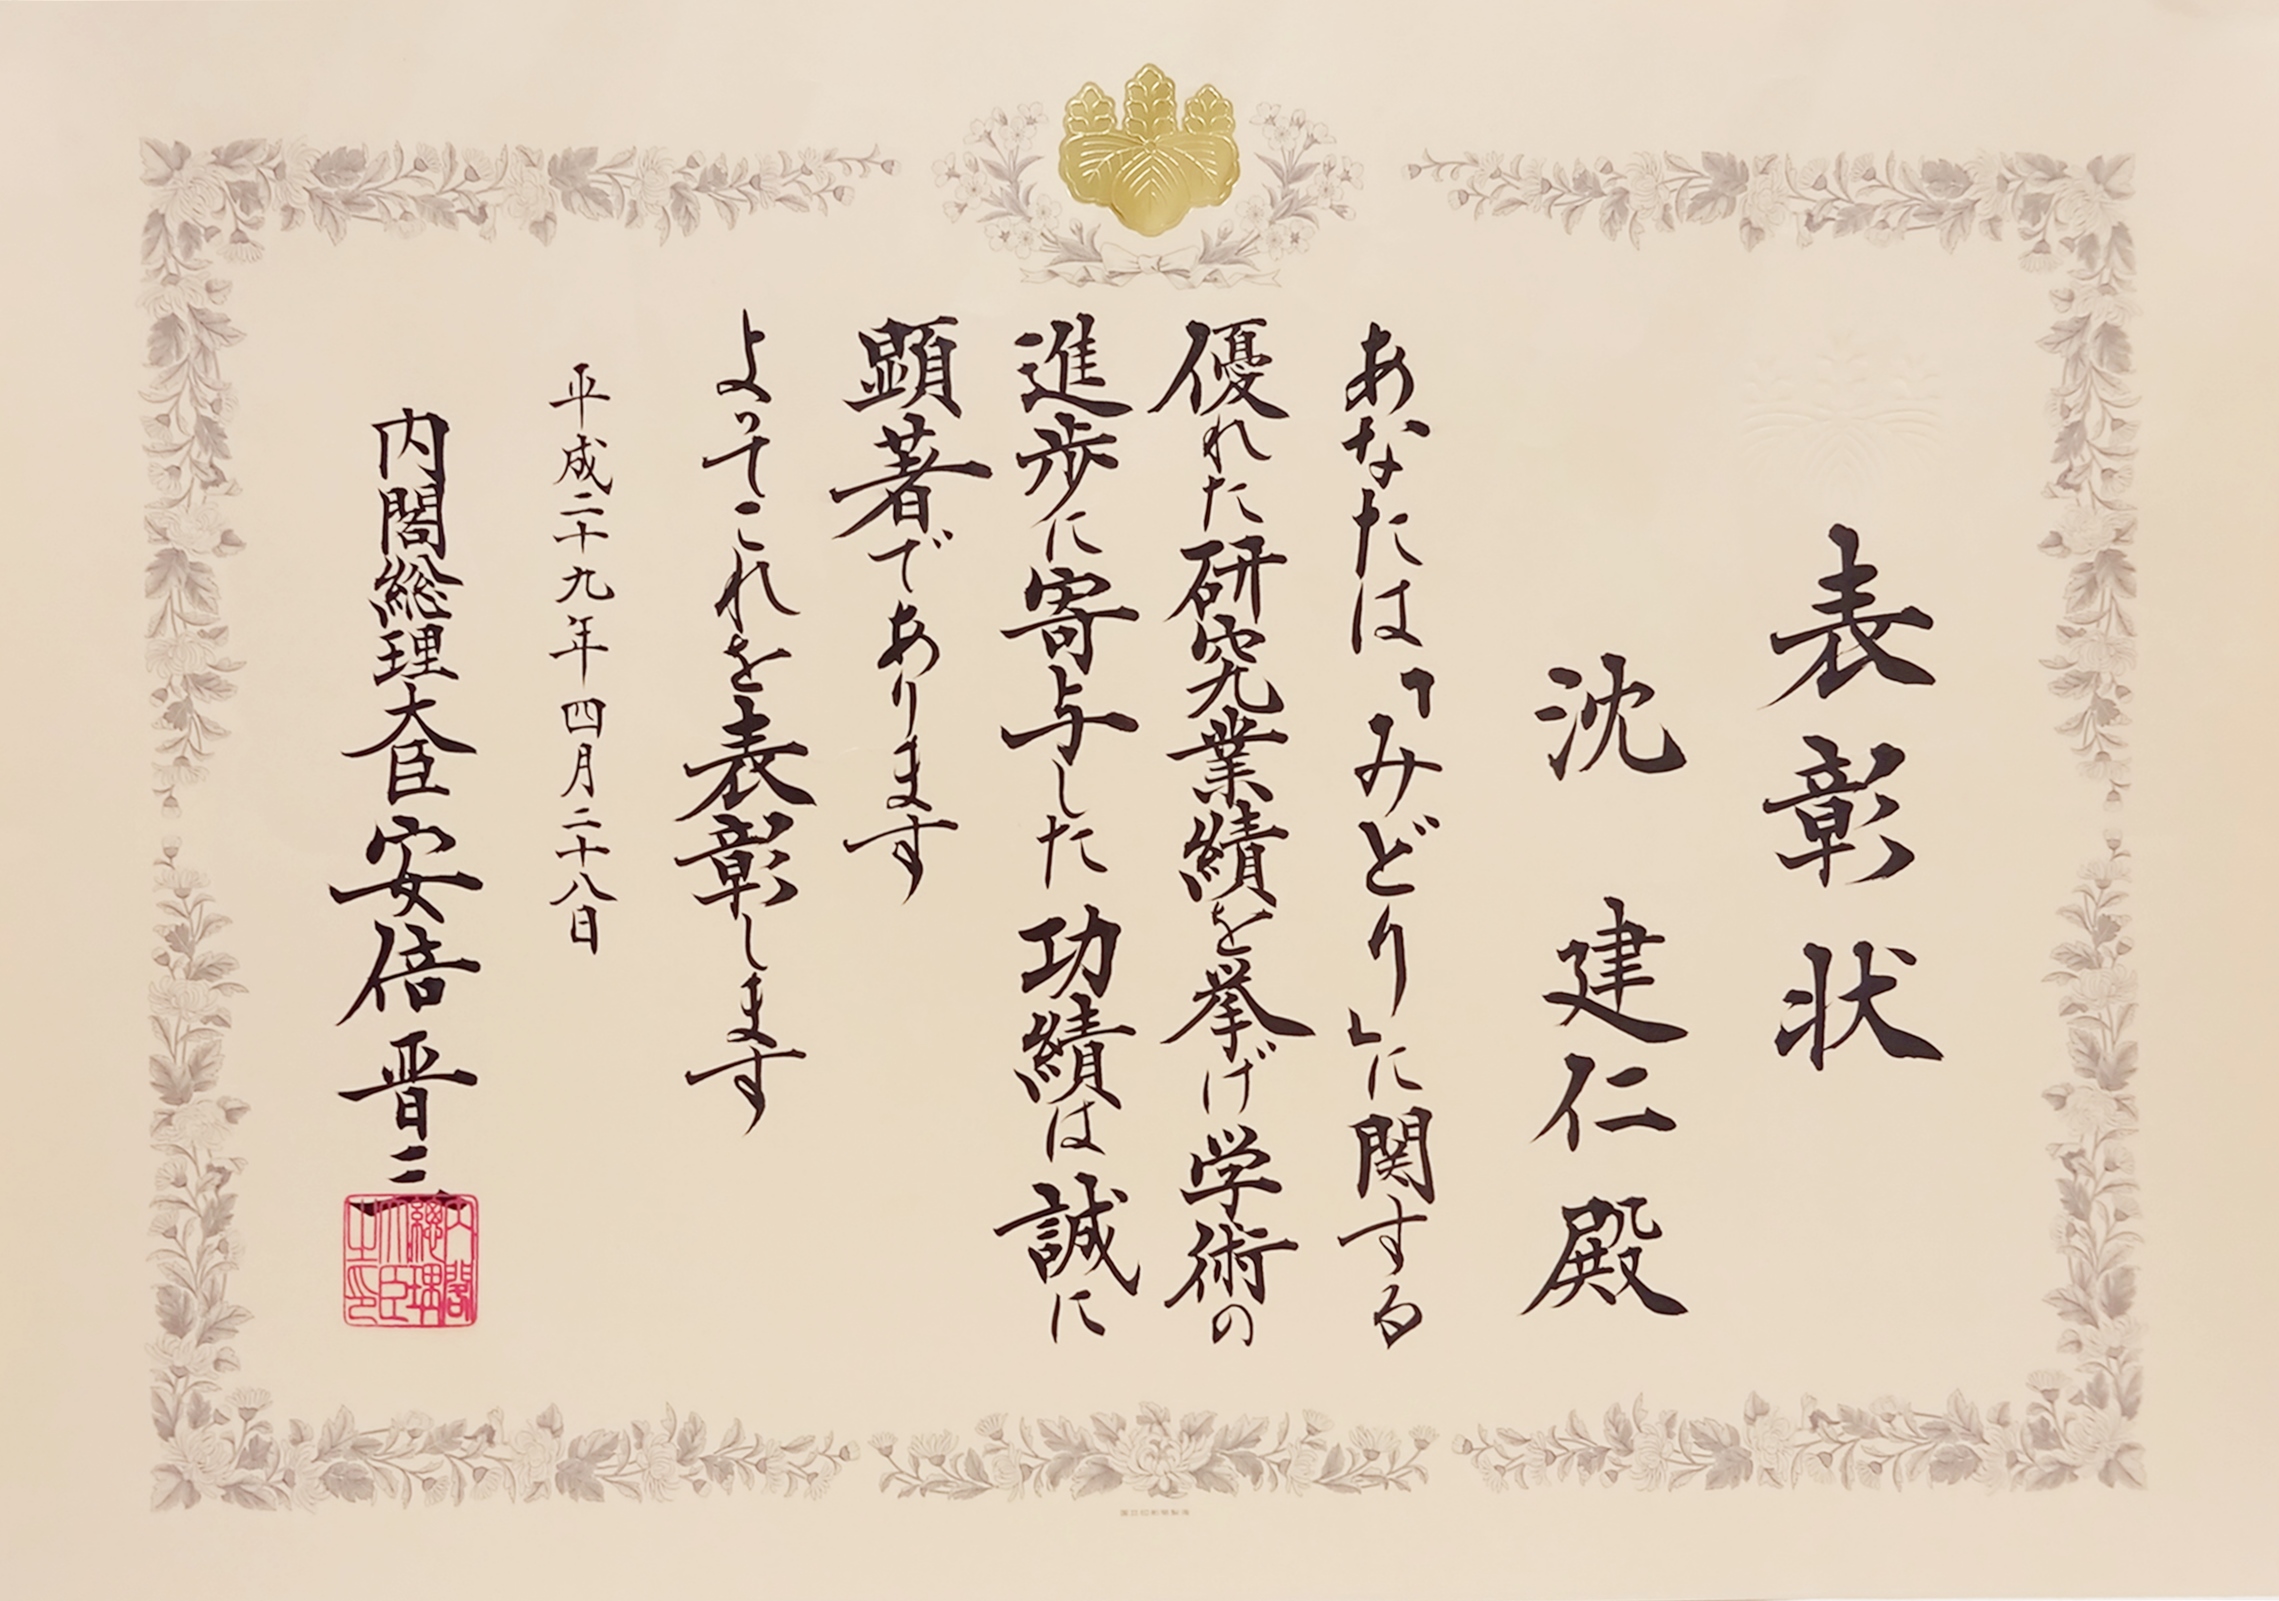 表彰状
沈 建仁 殿
あなたは「みどり」に関する
優れた研究業績を挙げ学術の
進歩に寄与した功績は誠に
顕著であります
よってこれを表彰します
平成二十九年四月二十八日
内閣総理大臣 安倍晋三
内閣総理大臣之印